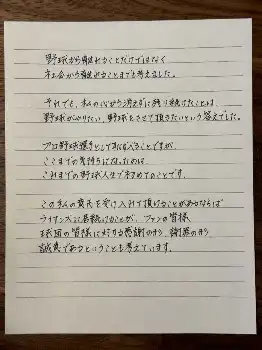 野球から離れることだけではなく
社会から離れることまでも考えました。
それでも、私の心から消えずに残り続けたことは
野球がやりたい、野球をさせて頂きたいという答えでした。
プロ野球選手として失礼なことですが、
ここまでの気持ちになったのは
これまでの野球人生で初めてのことです。
この私の責任を受け入れて頂けることがあるならば
ライオンズに貢献することが、ファンの皆様
球団の皆様に対する感謝の形、謝罪の形
誠意であるということも考えています。